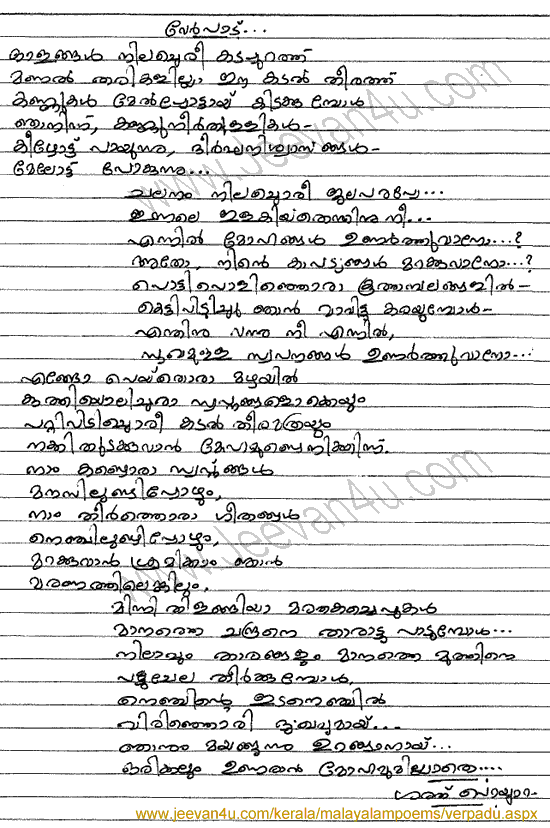 വേർപാട്...
കാളങ്ങൾ നിലച്ചൊരീ കടപ്പുറത്ത്
മണൽ തരികളില്ലാ ഈ കടൽ തീരത്ത്
കണ്ണുകൾ മേൽപ്പോട്ടായ് കിടക്കുമ്പോൾ
ഞാനിന്ന്, കണ്ണുനീർത്തുള്ളികൾ-
കീഴോട്ട് പായുന്നു, ദീർഘനിശ്വാസങ്ങൾ-
മേലോട്ട് പോകുന്നു...
ചലനം നിലച്ചൊരീ ജലപരപ്പേ...
ഇന്നലെ ഇളകിയതെന്തിനു നീ...
എന്നിൽ മോഹങ്ങൾ ഉണർത്തുവാനോ...?
അതോ, നിന്റെ കാപട്യങ്ങൾ മറക്കുവാനോ...?
പൊട്ടിപൊളിഞ്ഞൊരാ കൂത്തമ്പലങ്ങളിൽ-
കെട്ടിപിടിച്ചു ഞാൻ വാവിട്ടു കരയുമ്പോൾ-
എന്തിനു വന്നു നീ എന്നിൽ,
സുഖമുള്ള സ്വപ്നങ്ങൾ ഉണർത്തുവാനോ...
എങ്ങോ പെയ്തൊരാ മഴയിൽ
കുത്തിയൊലിച്ചുരാ സ്വപ്നങ്ങളൊക്കെയും
പറ്റിപിടിച്ചൊരീ കടൽ തീരമത്രയും
നക്കിതുടക്കുവാൻ മോഹമുണ്ടെനിക്കിന്ന്.
നാം കണ്ടൊരാ സ്വപ്നങ്ങൾ
മനസിലുണ്ടിപ്പോഴും,
നാം തീർത്തൊരാ ഗീതങ്ങൾ
നെഞ്ചിലുണ്ടിപ്പോഴും,
മറക്കുവാൻ ശ്രമിക്കാം ഞാൻ
മരണത്തിലെങ്കിലും,
മിന്നി തിളങ്ങിയാ മരതകച്ചെപ്പുകൾ
മാനത്തെ ചന്ദ്രനെ താരാട്ടു പാടുമ്പോൾ...
നിലാവും താരങ്ങളും മാനത്തെ മുത്തിനെ
പട്ടുചേല തീർക്കുമ്പോൾ,
നെഞ്ചിന്റെ ഇടനെഞ്ചിൽ
വിരിഞ്ഞൊരീ ദുഃഖവുമായ്...
ഞാനും മയങ്ങുന്നു ഉറങ്ങാനായ്...
ഒരിക്കലും ഉണരാൻ മോഹമില്ലാതെ....
ശരത്
www.jeevan4u.com
www.jeevan4u.com
www.jeevan4u.com/kerala/malayalampoems/verpadu.aspx